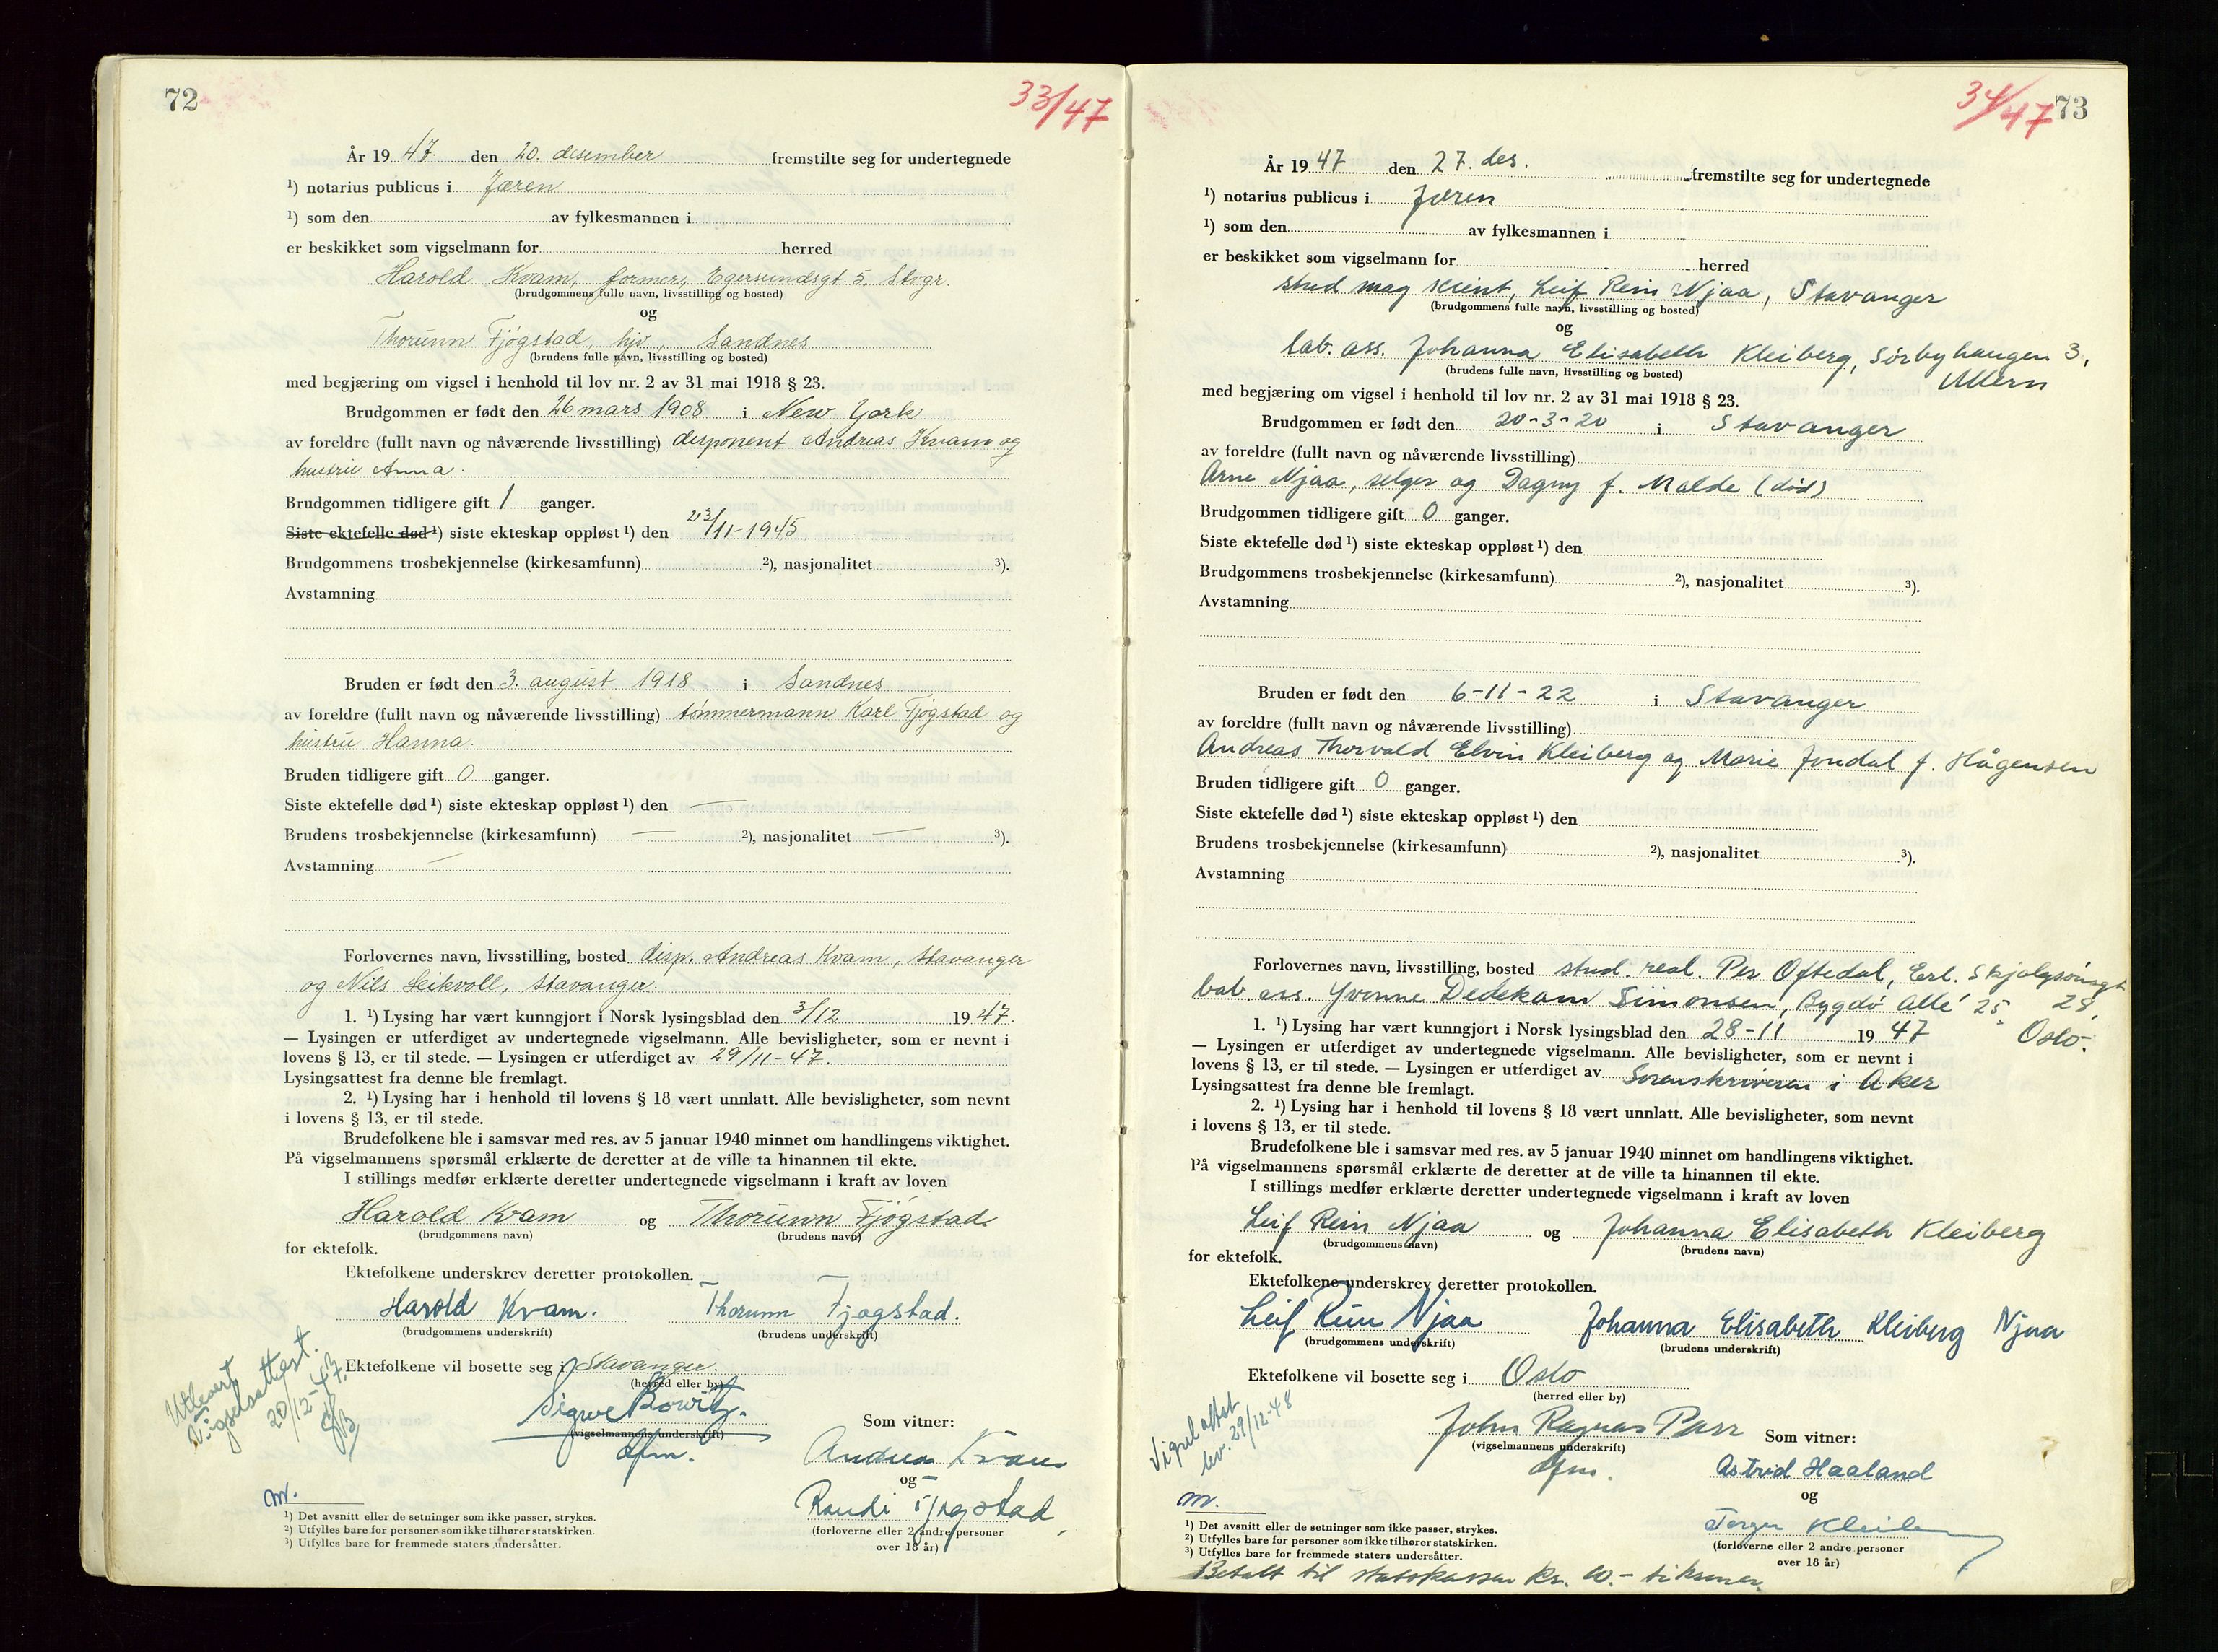 72
33/47
År 1947. den 20. desember fremstilte seg for undertegnede
¹) notarius publicus i Jæren
¹) som den av fylkesmannen i
er beskikket som vigselmann for herred
Harold Kvam, former, Egersundsgt. 5, Stvgr.
(brudgommens fulle navn, livsstilling og bosted)
og
Thorunn Fjøgstad, hjv., Sandnes
(brudens fulle navn, livsstilling og bosted)
med begjæring om vigsel i henhold til lov nr. 2 av 31 mai 1918 § 23.
Brudgommen er født den 26 mars 1908 i New York
av foreldre (fullt navn og nåværende livsstilling) disponent Andreas Kvam og
hustru Anna.
Brudgommen tidligere gift 1 ganger.
Siste ektefelle død ¹) siste ekteskap oppløst ¹) den 23/11-1945
Brudgommens trosbekjennelse (kirkesamfunn) ²), nasjonalitet ³).
Avstamning
Bruden er født den 3. august 1918 i Sandnes
av foreldre (fullt navn og nåværende livsstilling) tømmermann Karl Fjøgstad og
hustru Hanna.
Bruden tidligere gift 0 ganger.
Siste ektefelle død ¹) siste ekteskap oppløst ¹) den —
Brudens trosbekjennelse (kirkesamfunn) — ²), nasjonalitet — ³).
Avstamning —
Forlovernes navn, livsstilling, bosted disp. Andreas Kvam, Stavanger
og Nils Seikvoll, Stavanger.
1. ¹) Lysing har vært kunngjort i Norsk lysingsblad den 3/12 1947.
— Lysingen er utferdiget av undertegnede vigselmann. Alle bevisligheter, som er nevnt i
lovens § 13, er til stede. — Lysingen er utferdiget av 29/11-47.
Lysingsattest fra denne ble fremlagt.
2. ¹) Lysing har i henhold til lovens § 18 vært unnlatt. Alle bevisligheter, som nevnt
i lovens § 13, er til stede.
Brudefolkene ble i samsvar med res. av 5 januar 1940 minnet om handlingens viktighet.
På vigselmannens spørsmål erklærte de deretter at de ville ta hinannen til ekte.
I stillings medfør erklærte deretter undertegnede vigselmann i kraft av loven
Harold Kvam og Thorunn Fjøgstad
(brudgommens navn) (brudens navn)
for ektefolk.
Ektefolkene underskrev deretter protokollen.
Harold Kvam. Thorunn Fjøgstad.
(brudgommens underskrift) (brudens underskrift)
Ektefolkene vil bosette seg i Stavanger.
(herred eller by)
Utlevert
Vigselsattest.
20/12-47.
Sigwe Bowitz.
(vigselmannens underskrift)
dfm.
Som vitner:
Andreas Kvam
og
Randi Fjøgstad
(forloverne eller 2 andre personer
over 18 år)
m.
¹) Det avsnitt eller de setninger som ikke passer, strykes.
²) Utfylles bare for personer som ikke tilhører statskirken.
³) Utfylles bare for fremmede staters undersåtter.
34/47
73
År 1947 den 27. des. fremstilte seg for undertegnede
¹) notarius publicus i Jæren
¹) som den av fylkesmannen i
er beskikket som vigselmann for herred
stud mag scient, Leif Rein Njaa, Stavanger
(brudgommens fulle navn, livsstilling og bosted)
og
lab. ass. Johanna Elisabeth Kleiberg, Sørbyhaugen 3,
Ullern
(brudens fulle navn, livsstilling og bosted)
med begjæring om vigsel i henhold til lov nr. 2 av 31 mai 1918 § 23.
Brudgommen er født den 20-3-20 i Stavanger
av foreldre (fullt navn og nåværende livsstilling)
Arne Njaa, selger og Dagny f. Malde (død)
Brudgommen tidligere gift 0 ganger.
Siste ektefelle død ¹) siste ekteskap oppløst ¹) den
Brudgommens trosbekjennelse (kirkesamfunn) ²), nasjonalitet ³).
Avstamning
Bruden er født den 6-11-22 i Stavanger
av foreldre (fullt navn og nåværende livsstilling)
Andreas Thorvald Elvin Kleiberg og Marie Jondal f. Hågensen
Bruden tidligere gift 0 ganger.
Siste ektefelle død ¹) siste ekteskap oppløst ¹) den
Brudens trosbekjennelse (kirkesamfunn) ²), nasjonalitet ³).
Avstamning
Forlovernes navn, livsstilling, bosted stud. real. Per Oftedal, Erl. Skjalgsønsgt
28,
lab. ass. Yvonne Dedekam Simonsen, Bygdø Allé 25,
Oslo.
1. ¹) Lysing har vært kunngjort i Norsk lysingsblad den 28-11 1947
— Lysingen er utferdiget av undertegnede vigselmann. Alle bevisligheter, som er nevnt i
lovens § 13, er til stede. — Lysingen er utferdiget av Sorenskriveren i Aker
Lysingsattest fra denne ble fremlagt.
2. ¹) Lysing har i henhold til lovens § 18 vært unnlatt. Alle bevisligheter, som nevnt
i lovens § 13, er til stede.
Brudefolkene ble i samsvar med res. av 5 januar 1940 minnet om handlingens viktighet.
På vigselmannens spørsmål erklærte de deretter at de ville ta hinannen til ekte.
I stillings medfør erklærte deretter undertegnede vigselmann i kraft av loven
Leif Rein Njaa og Johanna Elisabeth Kleiberg
(brudgommens navn) (brudens navn)
for ektefolk.
Ektefolkene underskrev deretter protokollen.
Leif Rein Njaa Johanna Elisabeth Kleiberg Njaa
(brudgommens underskrift) (brudens underskrift)
Ektefolkene vil bosette seg i Oslo
(herred eller by)
Vigselattest
lev. 29/12-48
John Ragnar Parr
(vigselmannens underskrift)
dfm.
Som vitner:
Astrid Haaland
og
(forloverne eller 2 andre personer
over 18 år)
m.
¹) Det avsnitt eller de setninger som ikke passer, strykes.
²) Utfylles bare for personer som ikke tilhører statskirken.
³) Utfylles bare for fremmede staters undersåtter.
Betalt til statskassen kr. 10.- ti kroner.